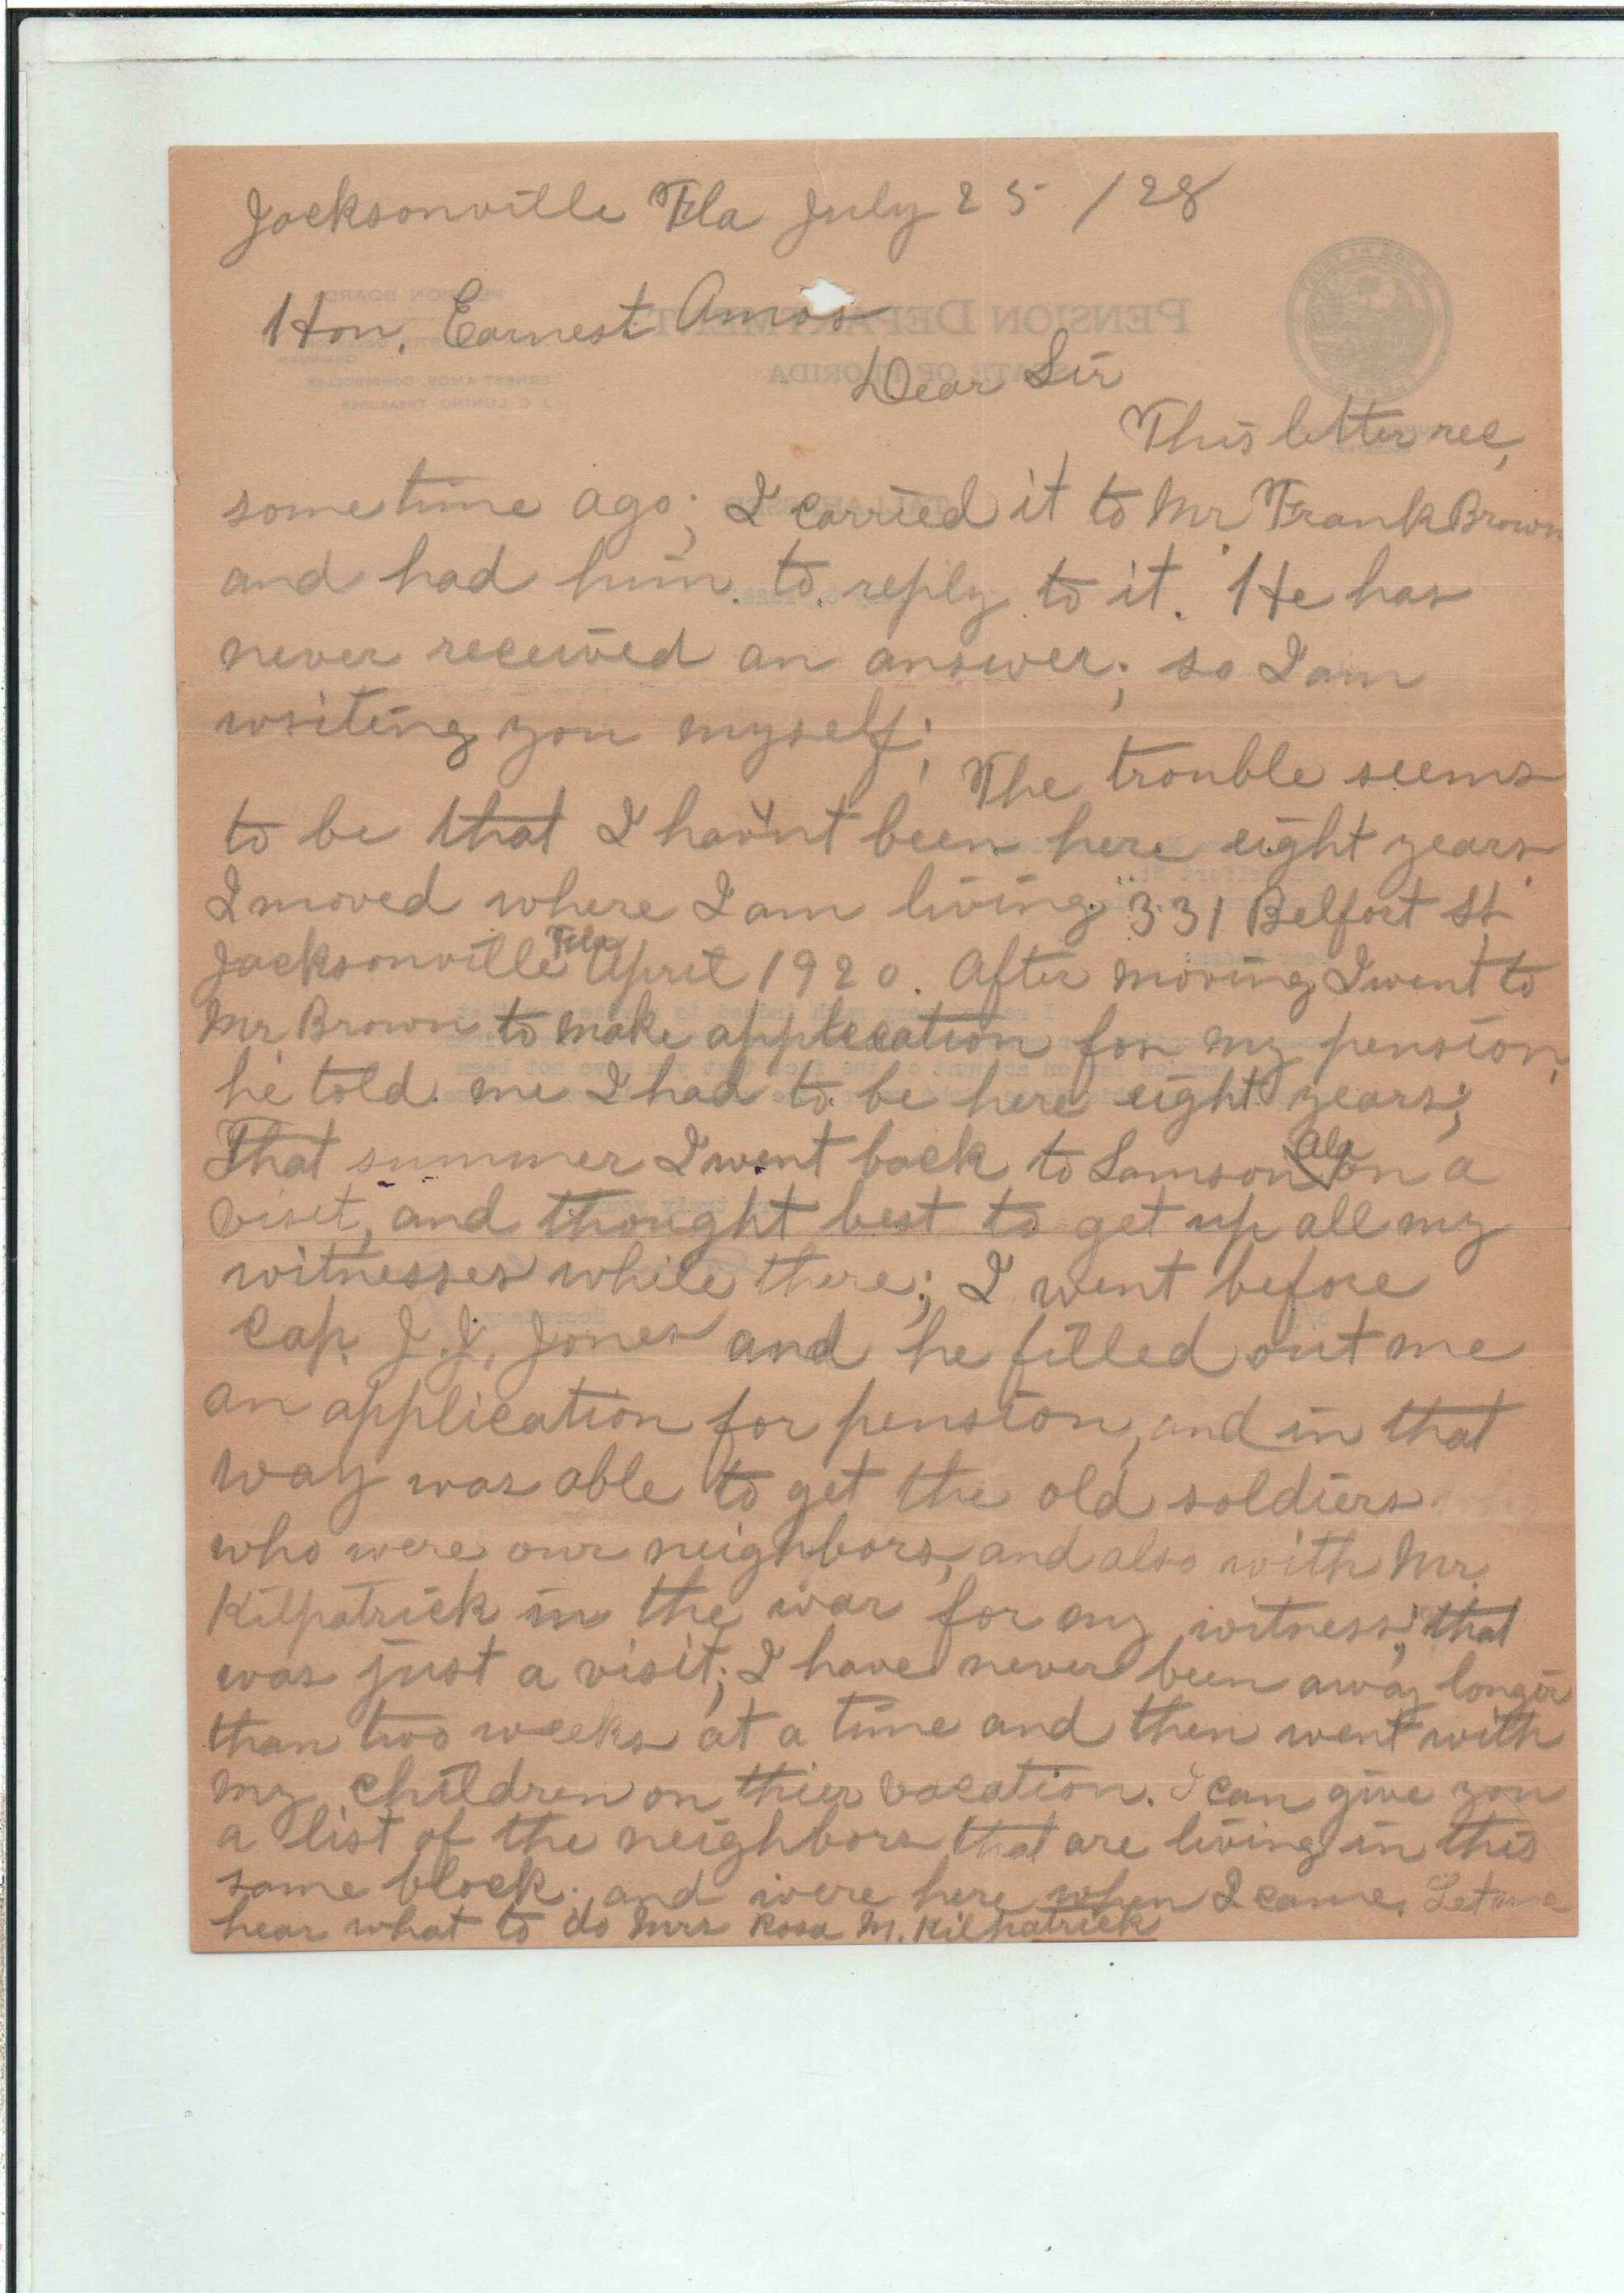 Jacksonville Fla July 25 /28
Hon. Earnest Amos
Dear Sir
This letter rec,
some time ago; I carried it to Mr Frank Brown
and had him to reply to it. He has
never received an answer; so I am
writing you myself;
The trouble seems
to be that I hav'nt been here eight years
I moved where I am living 331 Belfort St
Jacksonville Fla April 1920. After moving I went to
Mr Brown to make application for my pension,
he told me I had to be here eight years;
That summer I went back to Samson Ala on a
visit, and thought best to get up all my
witnesses while there; I went before
Cap. J.J. Jones and he filled out me
an application for pension, and in that
way was able to get the old soldiers
who were our neighbors, and also with Mr.
Kilpatrick in the war for my witness; that
was just a visit; I have never been away longer
than two weeks at a time and then went with
my children on thier vacation. I can give you
a list of the neighbors that are living in this
same block; and were here when I came. Let me
hear what to do Mrs Rosa M. Kilpatrick
PENSION DEPARTMENT
STATE OF FLORIDA
PENSION BOARD
ERNEST AMOS, COMPTROLLER
J. C. LUNING, TREASURER